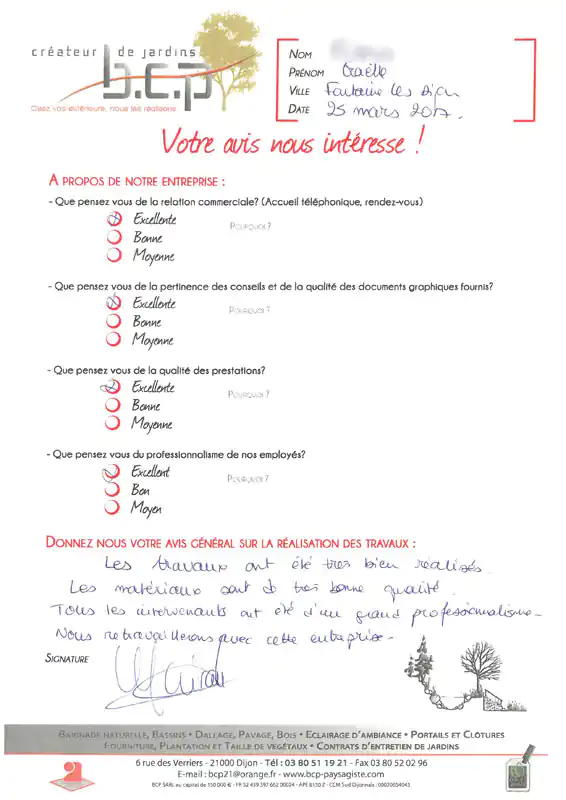 créateur de jardins
b.c.p
Osez vos extérieurs, nous les réalisons
NOM
PRÉNOM Gaëlle
VILLE Fontaine les Dijon
DATE 25 mars 2017.
Votre avis nous intéresse !
A PROPOS DE NOTRE ENTREPRISE :
- Que pensez vous de la relation commerciale? (Accueil téléphonique, rendez-vous)
Excellente POURQUOI ?
Bonne
Moyenne
- Que pensez vous de la pertinence des conseils et de la qualité des documents graphiques fournis?
Excellente POURQUOI ?
Bonne
Moyenne
- Que pensez vous de la qualité des prestations?
Excellente POURQUOI ?
Bonne
Moyenne
- Que pensez vous du professionnalisme de nos employés?
Excellent POURQUOI ?
Bon
Moyen
DONNEZ NOUS VOTRE AVIS GÉNÉRAL SUR LA RÉALISATION DES TRAVAUX :
Les travaux ont été très bien réalisés.
Les matériaux sont de très bonne qualité.
Tous les intervenants ont été d'un grand professionnalisme.
Nous retravaillerons avec cette entreprise.
SIGNATURE
BAIGNADE NATURELLE, BASSINS • DALLAGE, PAVAGE, BOIS • ECLAIRAGE D'AMBIANCE • PORTAILS ET CLÔTURES
FOURNITURE, PLANTATION ET TAILLE DE VÉGÉTAUX • CONTRATS D'ENTRETIEN DE JARDINS
6 rue des Verriers - 21000 Dijon - Tél : 03 80 51 19 21 - Fax 03 80 52 02 96
E-mail : bcp21@orange.fr - www.bcp-paysagiste.com